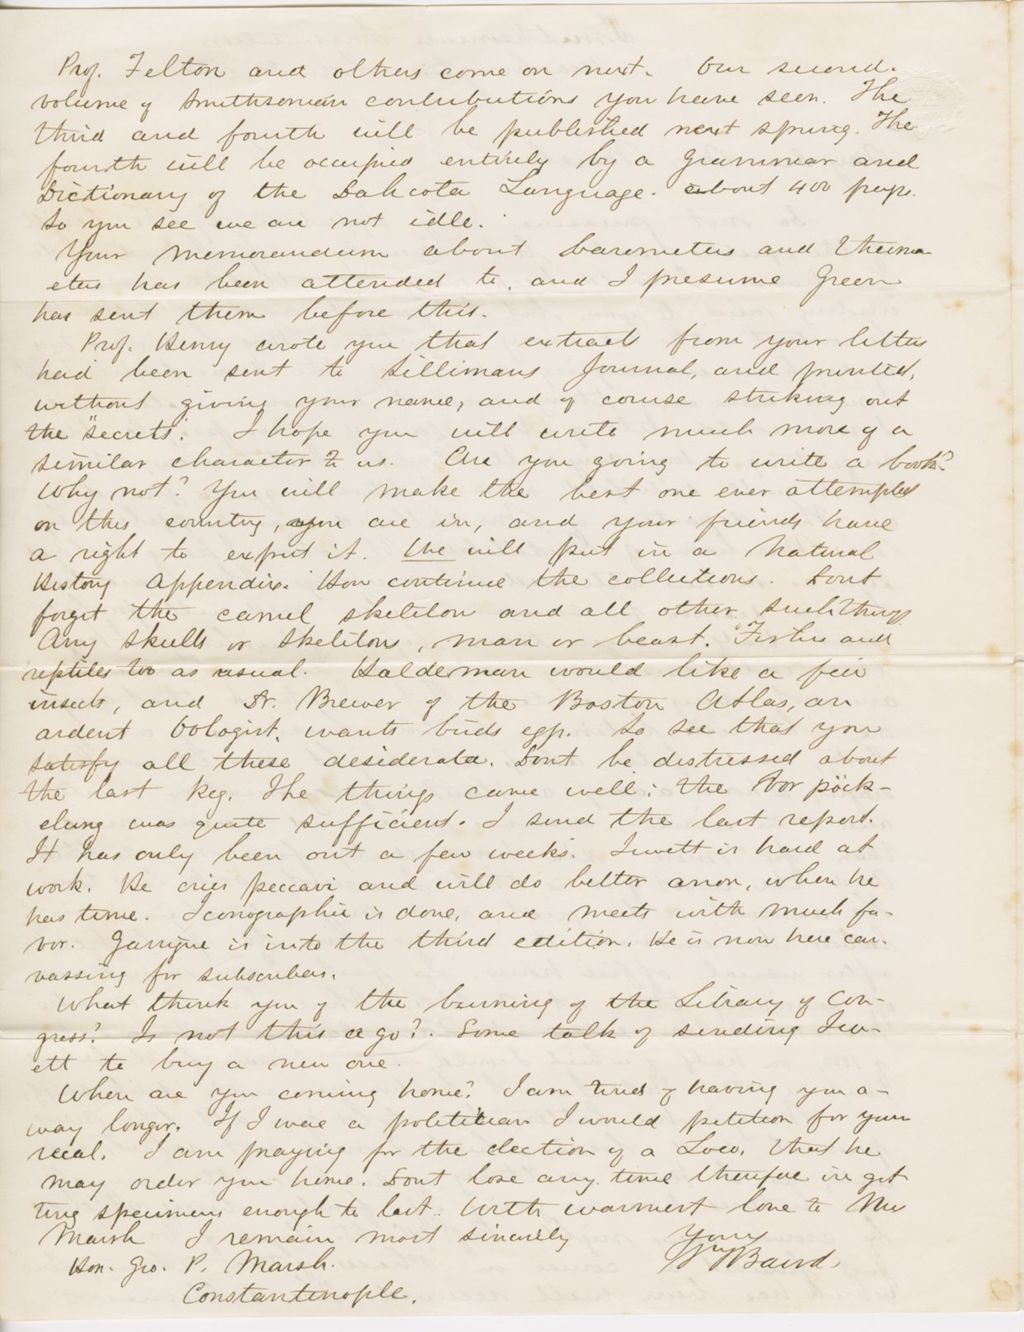 Prof. Felton and others come on next. Our second
volume of Smithsonian contributions you have seen. The
third and fourth will be published next spring. The
fourth will be occupied entirely by a Grammar and
Dictionary of the Dahcota Language. about 400 pages.
So you see we are not idle.
Your memorandum about barometers and thermom
eters has been attended to, and I presume Green
has sent them before this.
Prof. Henry wrote you that extracts from your letter
had been sent to Sillimans Journal, and printed,
without giving your name, and of course striking out
the "secrets". I hope you will write much more of a
similar character to us. Are you going to write a book?
Why not? You will make the best one ever attempted
on the country, you are in, and your friends have
a right to expect it. We will put in a Natural
History appendix. Now continue the collections. Dont
forget the camel skeleton and all other such things
Any skulls or skeletons, man or beast. Fishes and
reptiles too as usual. Haldeman would like a few
insects, and Dr. Brewer of the Boston Atlas, an
ardent Oologist, wants birds eggs. So see that you
satisfy all these desiderata. Dont be distressed about
the last keg. The things came well: the pöck-
elung was quite sufficient. I send the last report.
It has only been out a few weeks. Jewett is hard at
work. He cries peccavi and will do better anon, when he
has time. Iconographic is done, and meets with much fa-
vor. Garrigue is into the third edition. He is now here can-
vassing for subscribers.
What think you of the burning of the Library of Con-
gress? Is not this a go? Some talk of sending Jew-
ett to buy a new one.
When are you coming home? I am tired of having you a-
way longer. If I were a politician I would petition for your
recal. I am praying for the election of a Loco, that he
may order you home. Dont lose any time therefore in get
ting specimens enough to last. With warmest love to Mrs
Marsh I remain most sincerely Yours
Baird.
Hon. Geo. P. Marsh.
Constantinople.